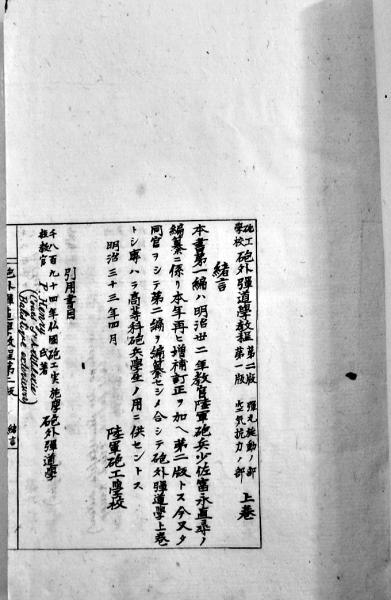 砲工學校 砲外彈道學教程 第二版 彈丸旋動ノ部 第一版 空気抗力ノ部 上巻
緒言
本書第一編ハ明治卅二年教官陸軍砲兵少佐富永直尋ノ
編纂ニ係リ本年再ヒ増補訂正ヲ加ヘ第二版トス今又タ
同官ヲシテ第二編ヲ編纂セシメ合シテ砲外彈道學上巻
トシ専ハラ高等科砲兵學生ノ用ニ供セントス
明治三十三年四月
陸軍砲工學校
引用書目
千八百九十四年仏國砲工実施學校教官 P. Henry 氏著 砲外彈道學
(Cours d'Artillerie
Balistique extérieure)
砲外彈道學教程第二版 緒言